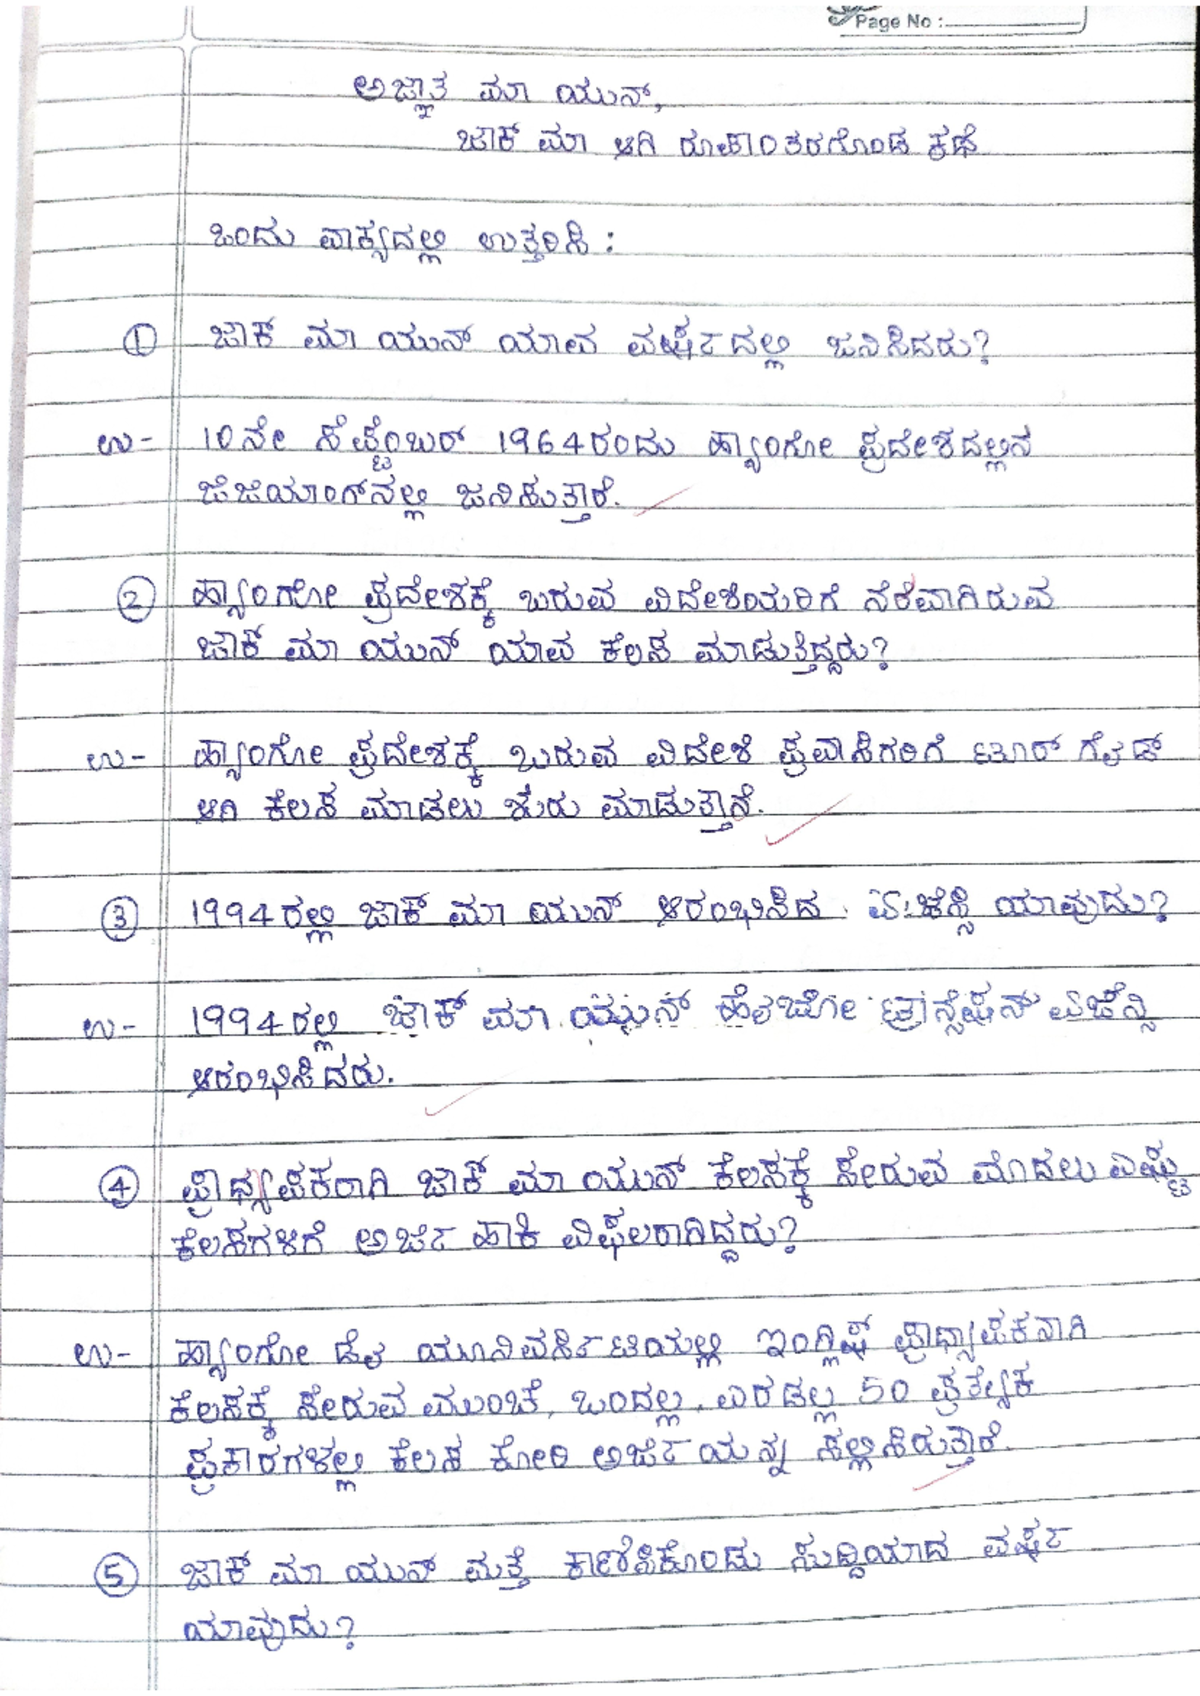 Page No :
ಅಜ್ಞಾತ ಮಾ ಯುನ್,
ಜಾಕ್ ಮಾ ಆಗಿ ರೂಪಾಂತರಗೊಂಡ ಕಥೆ
ಒಂದು ವಾಕ್ಯದಲ್ಲಿ ಉತ್ತರಿಸಿ :
① ಜಾಕ್ ಮಾ ಯುನ್ ಯಾವ ವರ್ಷದಲ್ಲಿ ಜನಿಸಿದರು?
ಉ- 10ನೇ ಸೆಪ್ಟೆಂಬರ್ 1964ರಂದು ಹ್ಯಾಂಗೋ ಪ್ರದೇಶದಲ್ಲಿನ
ಜೆಜಿಯಾಂಗ್‌ನಲ್ಲಿ ಜನಿಸುತ್ತಾರೆ.
② ಹ್ಯಾಂಗೋ ಪ್ರದೇಶಕ್ಕೆ ಬರುವ ವಿದೇಶಿಯರಿಗೆ ನೆರೆವಾಗಿರುವ
ಜಾಕ್ ಮಾ ಯುನ್ ಯಾವ ಕೆಲಸ ಮಾಡುತ್ತಿದ್ದರು?
ಉ- ಹ್ಯಾಂಗೋ ಪ್ರದೇಶಕ್ಕೆ ಬರುವ ವಿದೇಶಿ ಪ್ರವಾಸಿಗರಿಗೆ ಟೂರ್ ಗೈಡ್
ಆಗಿ ಕೆಲಸ ಮಾಡಲು ಶುರು ಮಾಡುತ್ತಾನೆ.
③ 1994ರಲ್ಲಿ ಜಾಕ್ ಮಾ ಯುನ್ ಆರಂಭಿಸಿದ ಏಜೆನ್ಸಿ ಯಾವುದು?
ಉ- 1994ರಲ್ಲಿ ಜಾಕ್ ಮಾ ಯುನ್ ಹೈಬೋ ಟ್ರಾನ್ಸ್ಲೆಷನ್ ಏಜೆನ್ಸಿ
ಆರಂಭಿಸಿದರು.
④ ಪ್ರಾಧ್ಯಾಪಕರಾಗಿ ಜಾಕ್ ಮಾ ಯುನ್ ಕೆಲಸಕ್ಕೆ ಸೇರುವ ಮೊದಲು ಎಷ್ಟು
ಕೆಲಸಗಳಿಗೆ ಅರ್ಜಿ ಹಾಕಿ ವಿಫಲರಾಗಿದ್ದರು?
ಉ- ಹ್ಯಾಂಗೋ ಡೈ ಯೂನಿವರ್ಸಿಟಿಯಲ್ಲಿ ಇಂಗ್ಲಿಷ್ ಪ್ರಾಧ್ಯಾಪಕನಾಗಿ
ಕೆಲಸಕ್ಕೆ ಸೇರುವ ಮುಂಚೆ, ಒಂದಲ್ಲ, ಎರಡಲ್ಲ 50 ಪ್ರತ್ಯೇಕ
ಪ್ರಕಾರಗಳಲ್ಲಿ ಕೆಲಸ ಕೋರಿ ಅರ್ಜಿಯನ್ನು ಸಲ್ಲಿಸಿರುತ್ತಾರೆ.
⑤ ಜಾಕ್ ಮಾ ಯುನ್ ಮತ್ತೆ ಕಾಣಿಸಿಕೊಂಡು ಸುದ್ದಿಯಾದ ವರ್ಷ
ಯಾವುದು?